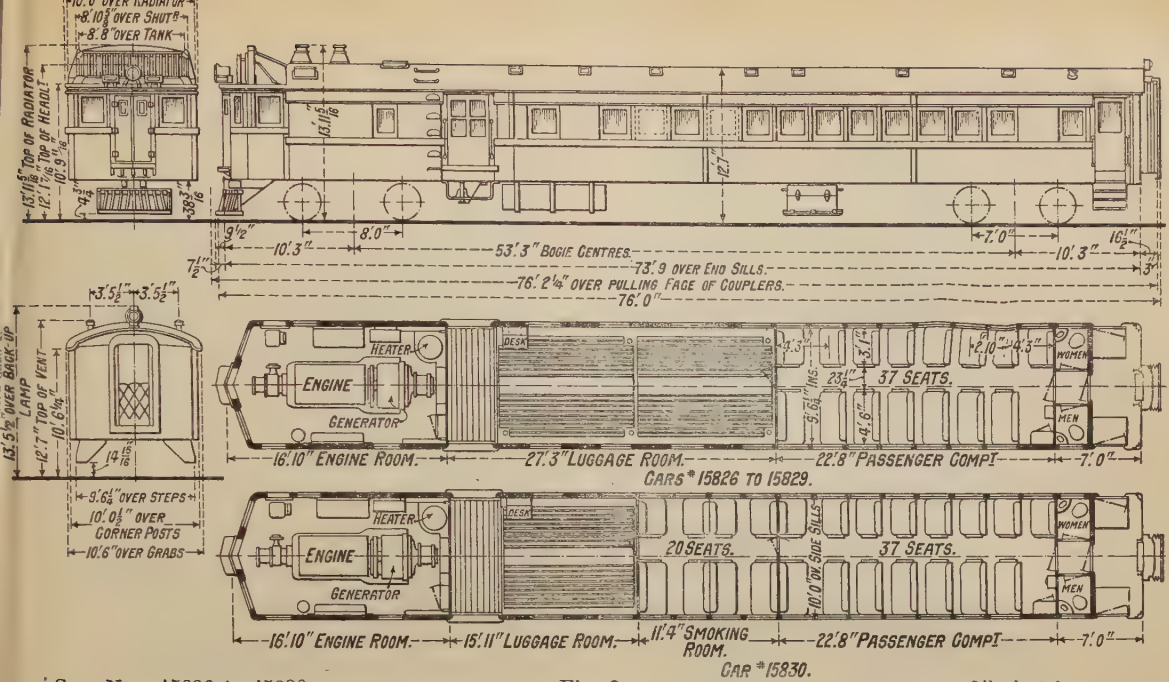 10'.6" OVER RADIATOR
8'.10 5/8" OVER SHUTR
8'.8" OVER TANK
13'.11 5/16" TOP OF RADIATOR
12'.1 7/16" TOP OF HEADLT
10'.9 9/16"
4 3/4"
38 3/16"
13'.11 5/16"
12'.7"
9 1/2"
8'.0"
7'.0"
16 1/2"
10'.3"
53'.3" BOGIE CENTRES.
10'.3"
7 1/2"
73'.9 OVER END SILLS.
3"
76'.2 1/4" OVER PULLING FACE OF COUPLERS.
76'.0"
3'.5 1/2"
3'.5 1/2"
13'.5 1/2" OVER BACK-UP
LAMP
12'.7" TOP OF VENT
10'.6 1/4"
9'.6 1/4" OVER STEPS
10'.0 1/2" OVER
CORNER POSTS
10'.6" OVER GRABS
HEATER
ENGINE
GENERATOR
DESK
4'.3"
3'.1"
2'.10"
4'.3"
9'.6 1/4" INS.
23 1/4"
37 SEATS.
4'.6"
WOMEN
MEN
16'.10" ENGINE ROOM.
27'.3" LUGGAGE ROOM.
22'.8" PASSENGER COMPT
7'.0"
CARS #15826 TO 15829.
HEATER
ENGINE
GENERATOR
DESK
20 SEATS.
10'.0" OV. SIDE SILLS
37 SEATS.
WOMEN
MEN
16'.10" ENGINE ROOM.
15'.11" LUGGAGE ROOM.
11'.4" SMOKING
ROOM.
22'.8" PASSENGER COMPT
7'.0"
CAR #15830.